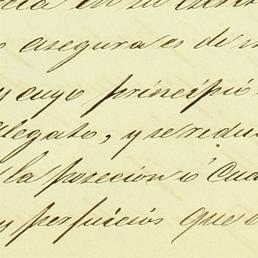 asegura es de
y cuyo principio
alegato, y se redu
la posecion ó cua
y perjuicios que